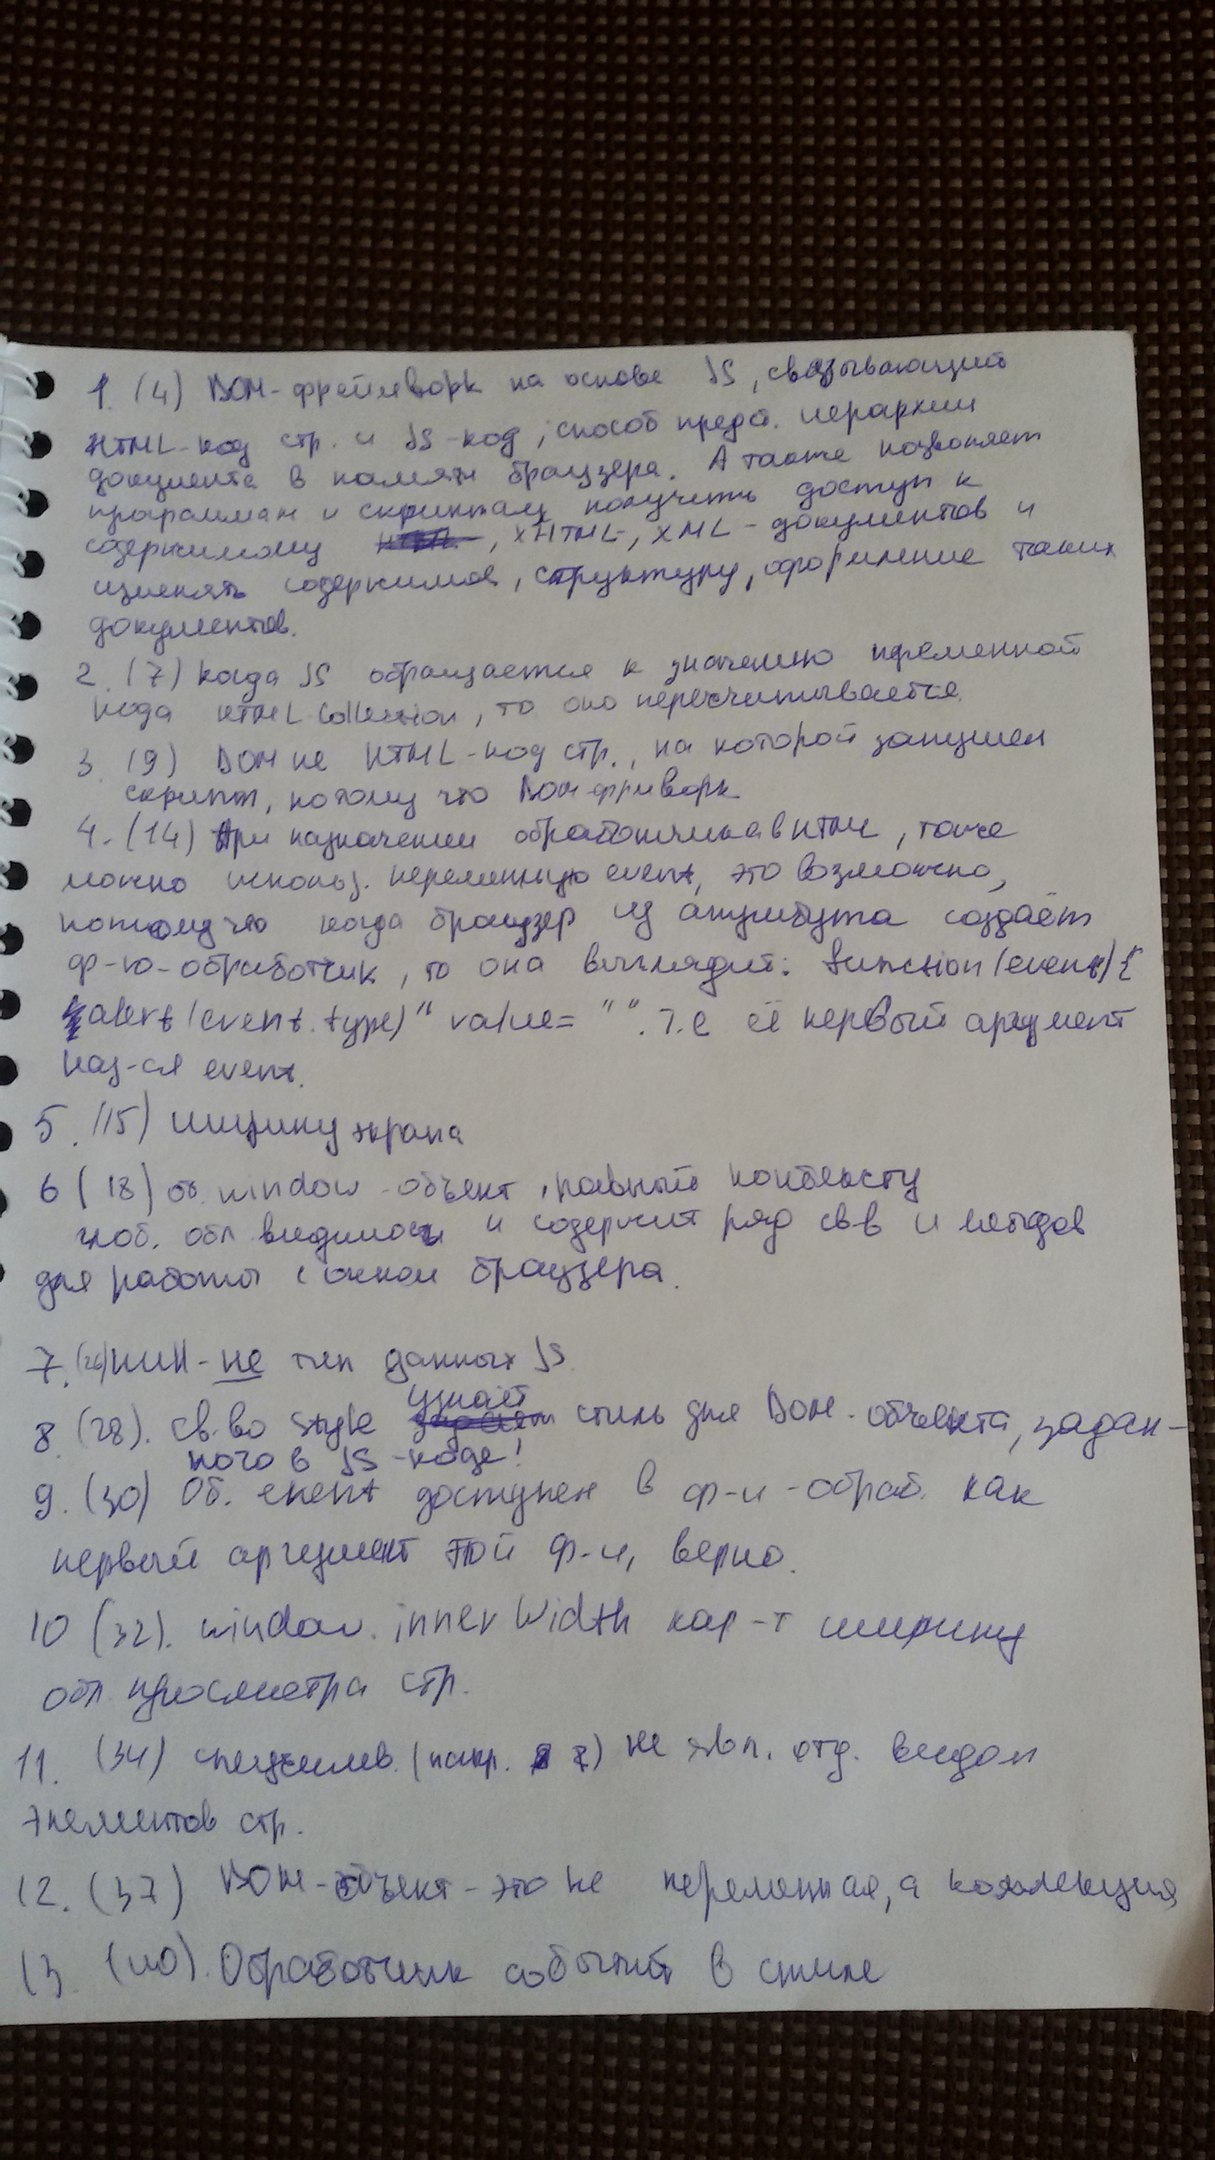 1. (4) DOM-фреймворк на основе JS, связывающий
HTML-код стр. и JS-код, способ предст. иерархии
документа в памяти браузера. А также позволяет
программам и скриптам получить доступ к
содержимому , XHTML-, XML-документов и
изменять содержимое, структуру, оформление таких
документов.
2. (7) когда JS обращается к значению переменной
вида HTML Collection, то оно пересчитывается.
3. (9) DOM не HTML-код стр., на которой запущен
скрипт, потому что DOM-фрйворк
4. (14) При назначении обработчика в HTML, тоже
можно использ. переменную event, это возможно,
потому что когда браузер из атрибута создаёт
ф-ю-обработчик, то она выглядит: function(event){
alert(event.type)" value= " ". Т.е её первый аргумент
наз-ся event.
5. (15) ширину экрана
6 (18) об. window-объект, равный контексту
глоб. обл. видимости и содержит ряд св-в и методов
для работы с окном браузера.
7. (26) null - не тип данных JS
8. (28). св-во style узнаёт стиль для DOM-объекта, задан-
ного в JS-коде!
9. (30) Об. event доступен в ф-и-обраб. как
первый аргумент этой ф-и, верно.
10 (32). window.innerWidth хар-т ширину
обл. просмотра стр.
11. (34) спецсимв. (напр. ) не явл. отд. видом
элементов стр.
12. (37) DOM-объект - это не переменная, а коллекция
13. (40). Обработчик событий в стиле